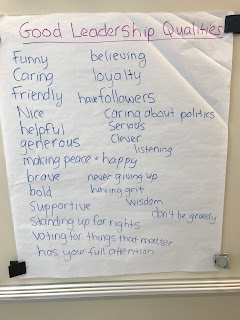 Good Leadership Qualities
Funny believing
Caring loyalty
Friendly have followers
Nice Caring about politics
helpful Serious
generous Clever
listening
making peace + happy
brave never giving up
bold having grit
Supportive wisdom
don't be greedy
Standing up for rights
Voting for things that matter
has your full attention